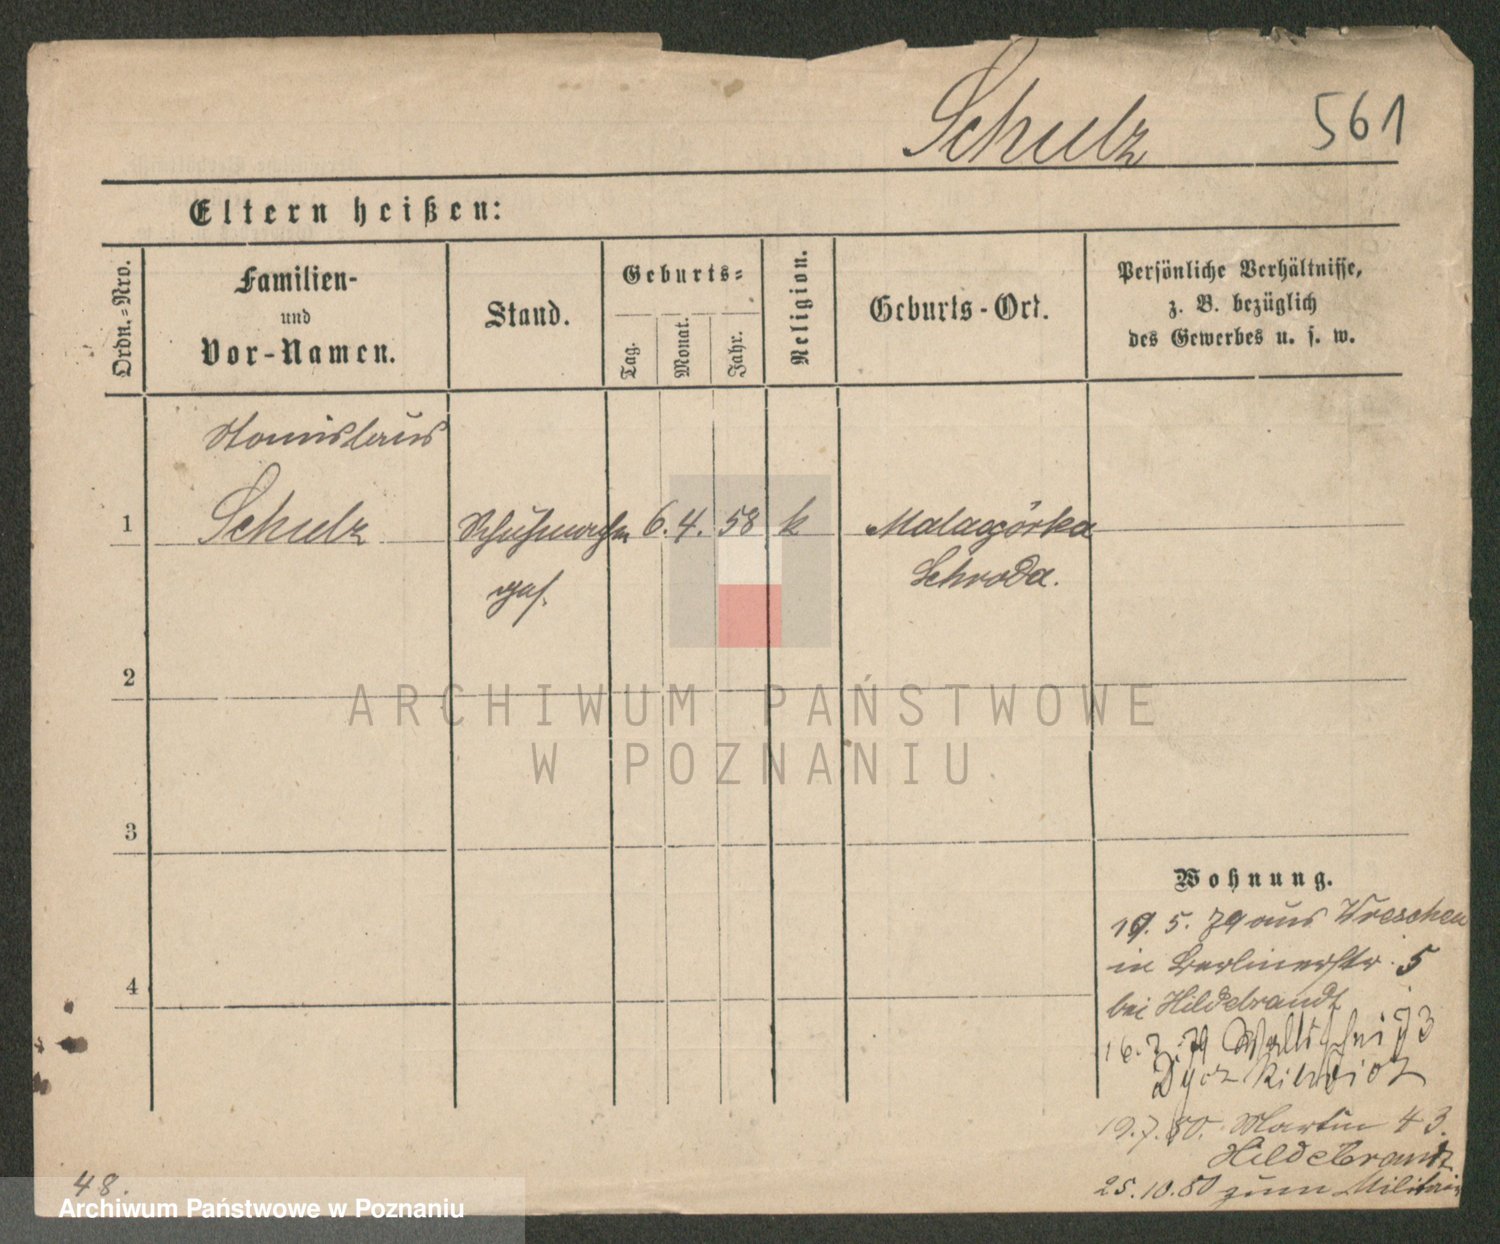 Schulz 561
Eltern heißen:
Ordn.-Nro.
Familien-
und
Vor-Namen.
Stand.
Geburts-
Tag.
Monat.
Jahr.
Religion.
Geburts-Ort.
Persönliche Verhältnisse,
z. B. bezüglich
des Gewerbes u. s. w.
Stanislaus
1 Schulz Schuhmacher 6. 4. 58 k Malagórka
ges. Schroda.
2
ARCHIWUM PAŃSTWOWE
W POZNANIU
3
Wohnung.
19. 5. 79 aus Wreschen
in Berlinerstr. 5
4
bei Hildebrandt
16. 7. 79 3
19. 7. 80. Martin 43.
Hildebrandt
25. 10. 80 zum Militair
48.
Archiwum Państwowe w Poznaniu